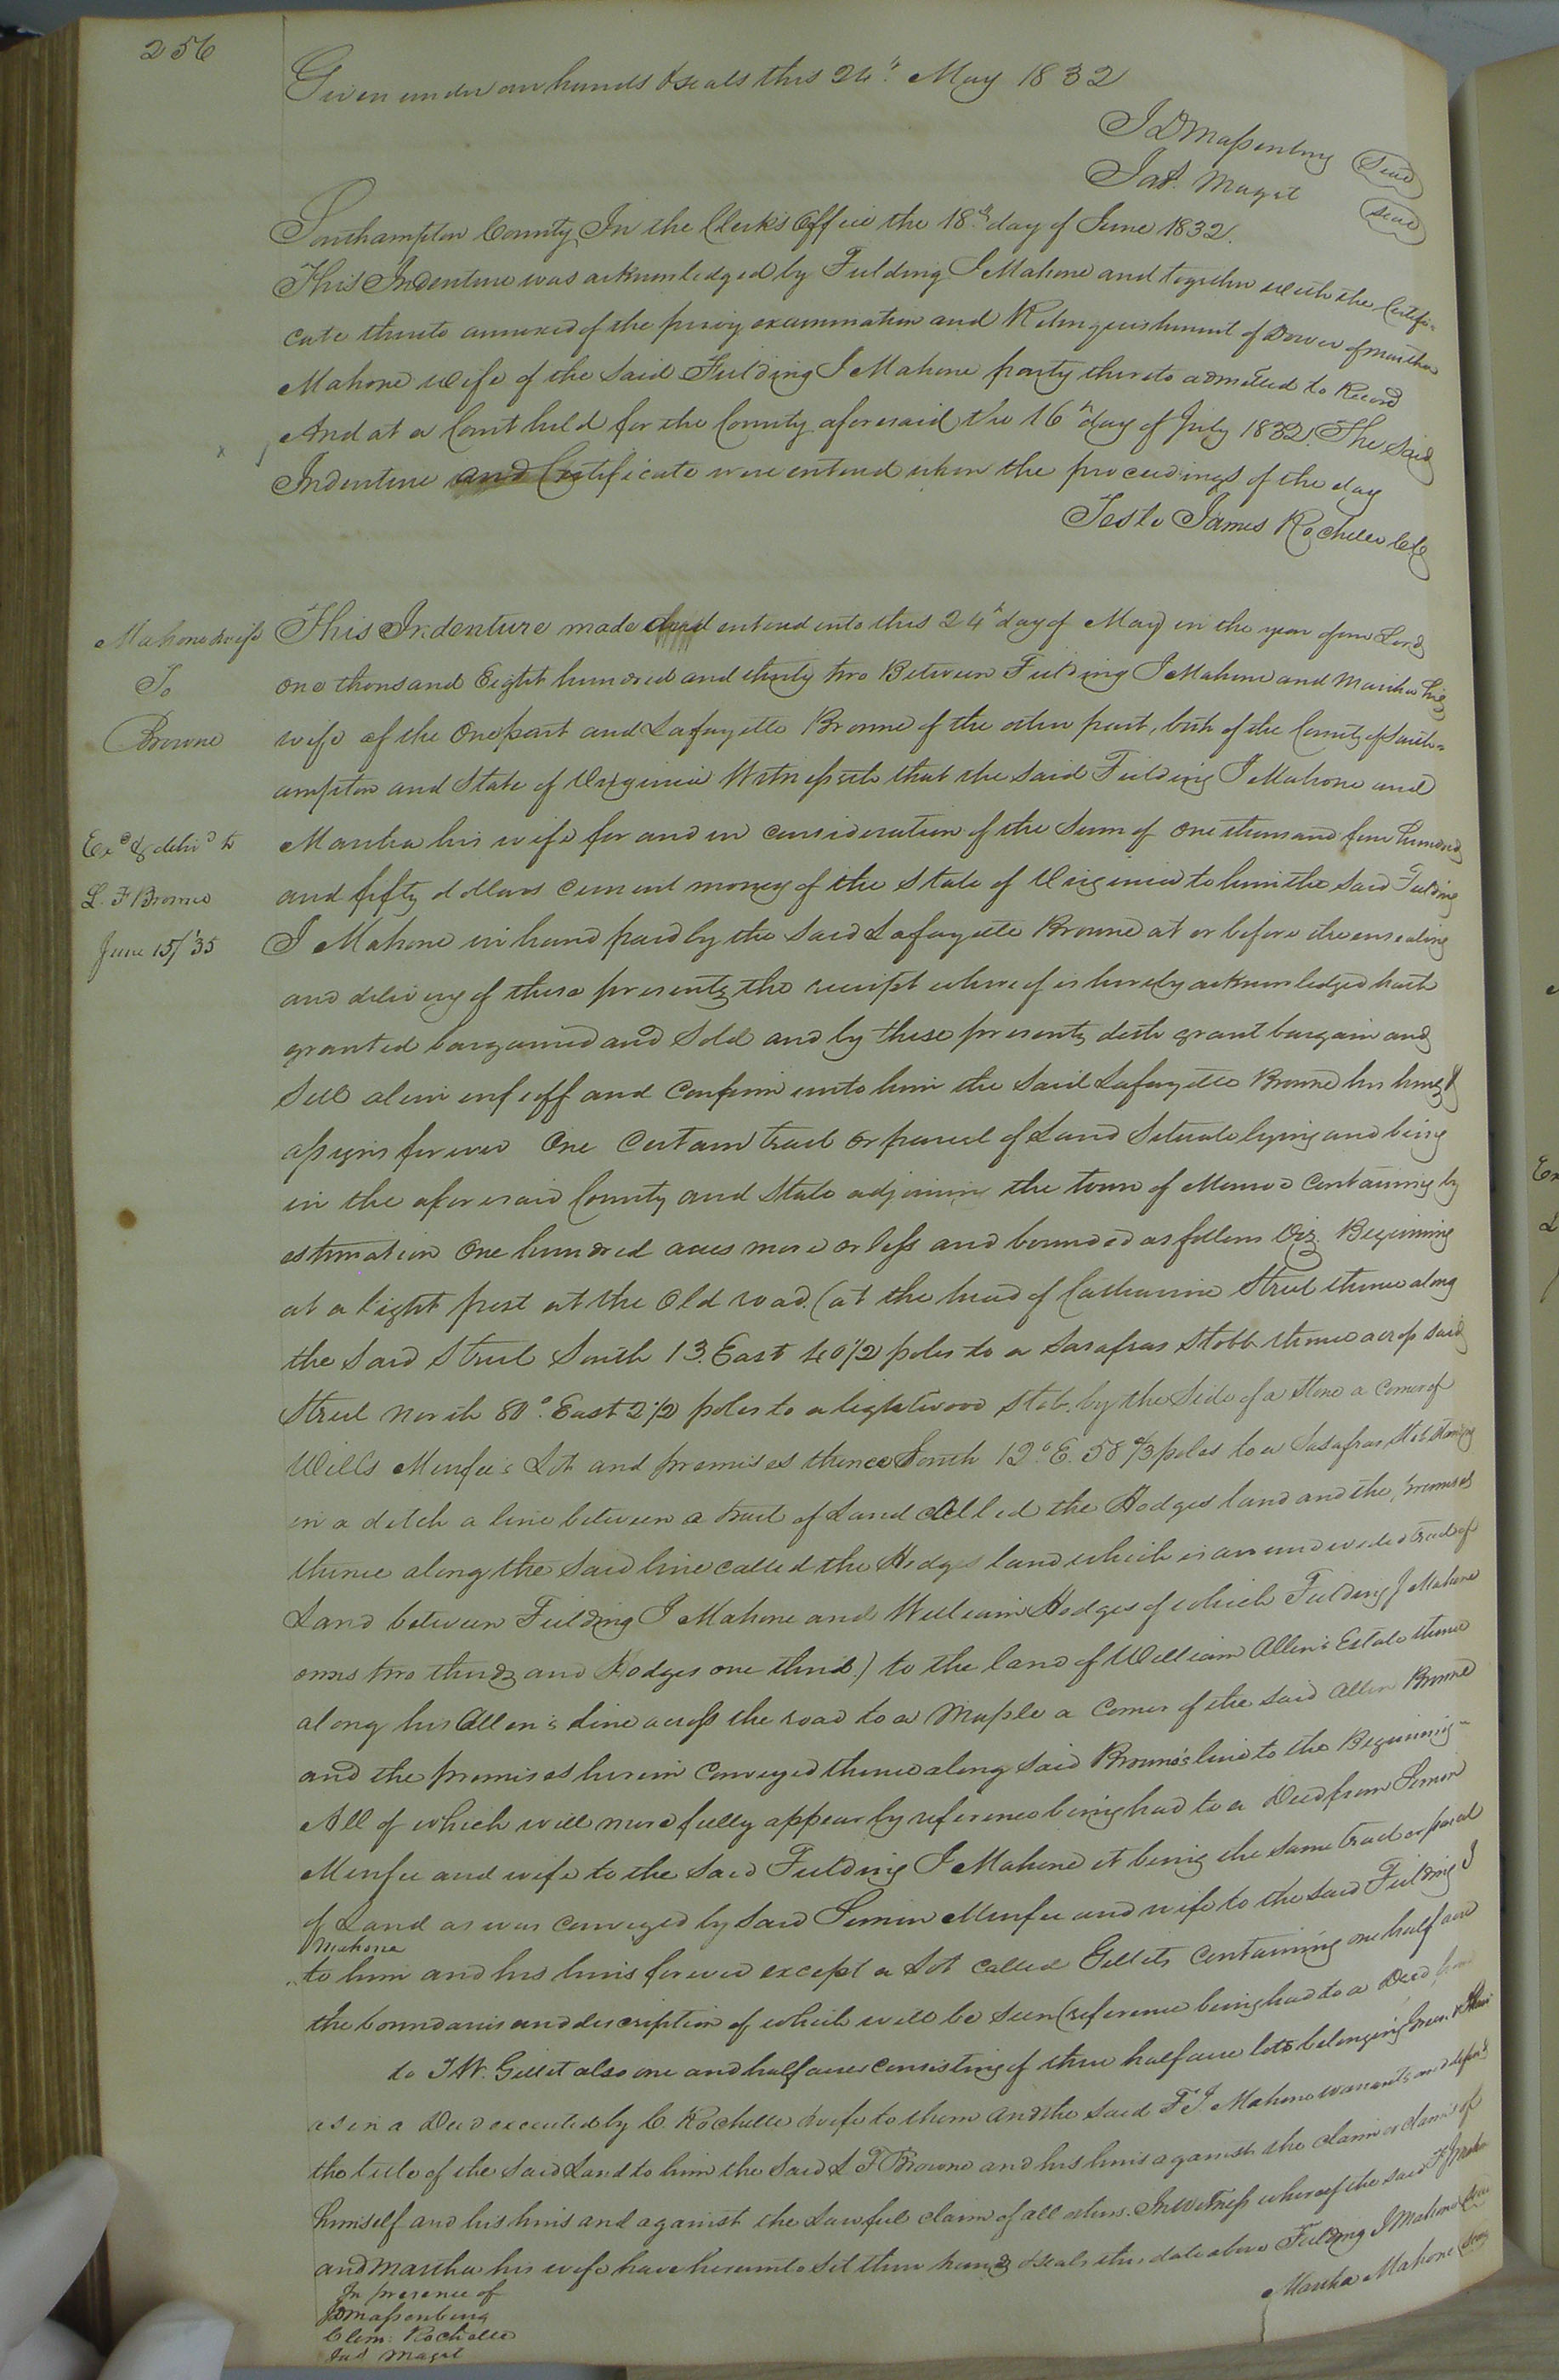 256
Given under our hands & seals this 24th May 1832
J D Massenburg Seal
Jas. Magit Seal
Southampton County In the Clerk's Office the 18th day of June 1832.
This Indenture was acknowledged by Fielding J Mahone and together with the Certifi-
cate thereto annexed of the privy examination and Relinquishment of Dower of Martha
Mahone wife of the said Fielding J Mahone party thereto admitted to Record
And at a Court held for the County aforesaid the 16th day of July 1832. The said
Indenture and Certificate were entered upon the proceedings of the day
Teste James Rochelle Clk
Mahone & wife
To
Browne
Exd & delivd to
L. F Browne
June 15/'35
This Indenture made and entered into this 24th day of May in the year of our Lord
one thousand Eight hundred and thirty two Between Fielding J Mahone and Martha his
wife of the one part and Lafayette Browne of the other part, both of the County of South-
ampton and State of Virginia Witnesseth that the said Fielding J Mahone and
Martha his wife for and in consideration of the sum of one thousand four hundred
and fifty dollars current money of the State of Virginia to him the said Fielding
J Mahone in hand paid by the said Lafayette Browne at or before the ensealing
and delivery of these presents, the receipt whereof is hereby acknowledged hath
granted bargained and sold and by these presents doth grant bargain and
sell alien enfeoff and confirm unto him the said Lafayette Browne his heirs &
assigns forever One certain tract or parcel of Land Situate lying and being
in the aforesaid County and State adjoining the town of Monroe containing by
estimation One hundred acres more or less and bounded as follows Viz. Beginning
at a light post at the old road (at the head of Catharine Street thence along
the said Street South 13. East 40 1/2 poles to a Sasafras Stobb thence across said
Street North 80° East 2 1/2 poles to a lightwood Stob. by the side of a Stone a corner of
Wills Menfee's Lot and premises thence South 12° E. 58 2/3 poles to a Sasafras Stob standing
in a ditch a line between a tract of Land called the Hodges land and the premises
thence along the said line called the Hodges land which is an undivided tract of
Land between Fielding J Mahone and William Hodges of which Fielding J Mahone
owns two thirds and Hodges one third.) to the land of William Allen's Estate thence
along his Allen's line across the road to a Maple a corner of the said Allen Browne
and the premises herein conveyed thence along said Browne's line to the Beginning-
All of which will more fully appear by reference being had to a Deed from Simon
Menfee and wife to the said Fielding J Mahone it being the same tract or parcel
of Land as was conveyed by said Simon Menfee and wife to the said Fielding J
Mahone
to him and his heirs forever except a Lot called Gillets containing one half acre
the boundaries and description of which will be seen (reference being had to a Deed from
to J W. Gillet also one and half acres consisting of three half acre lots belonging
as in a Deed executed by C. Rochelle & wife to them and the said F J. Mahone warrants and defends
the title of the said Land to him the said L F Browne and his heirs against the claim or claims of
himself and his heirs and against the Lawful claim of all others. In Witness whereof the said F J Mahone
and Martha his wife have hereunto set their hands & seals this date above Fielding J Mahone Seal
Martha Mahone Seal
In presence of
J D Massenburg
Clem: Rochelle
Jas Magit